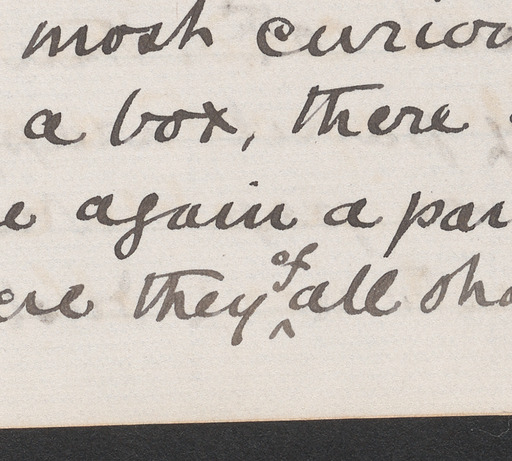 most curiou
a box, there
e again a par
ere they of all sha